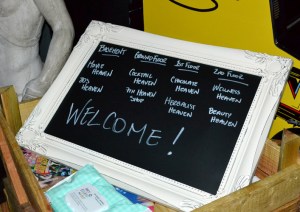 BASEMENT
MOVIE
HEAVEN
HEAVEN
GROUND FLOOR
COCKTAIL
HEAVEN
HEAVEN
SHOP
1ST FLOOR
CHOCOLATE
HEAVEN
HERBALIST
HEAVEN
2ND FLOOR
WELLNESS
HEAVEN
BEAUTY
HEAVEN
WELCOME!